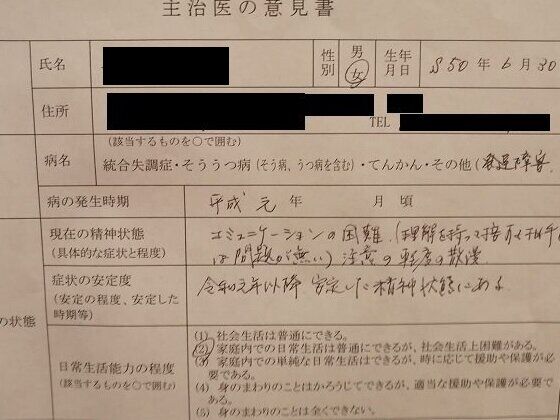 主治医の意見書
氏名 性別 男 女 生年月日 S50年6月30
住所 TEL
(該当するものを○で囲む)
病名 統合失調症・そううつ病(そう病、うつ病を含む)・てんかん・その他(発達障害
病の発生時期 平成 元 年 月 頃
現在の精神状態 コミュニケーションの困難(理解を持って接すれば
(具体的な症状と程度) は問題が無い)注意の軽度の散漫
症状の安定度 令和元年以降 安定した精神状態にある
(安定の程度、安定した
時期等)
の状態
日常生活能力の程度
(該当するものを○で囲む)
(1) 社会生活は普通にできる。
(2) 家庭内での日常生活は普通にできるが、社会生活上困難がある。
(3) 家庭内での単純な日常生活はできるが、時に応じて援助や保護が必
要である。
(4) 身のまわりのことはかろうじてできるが、適当な援助や保護が必要で
ある。
(5) 身のまわりのことは全くできない。